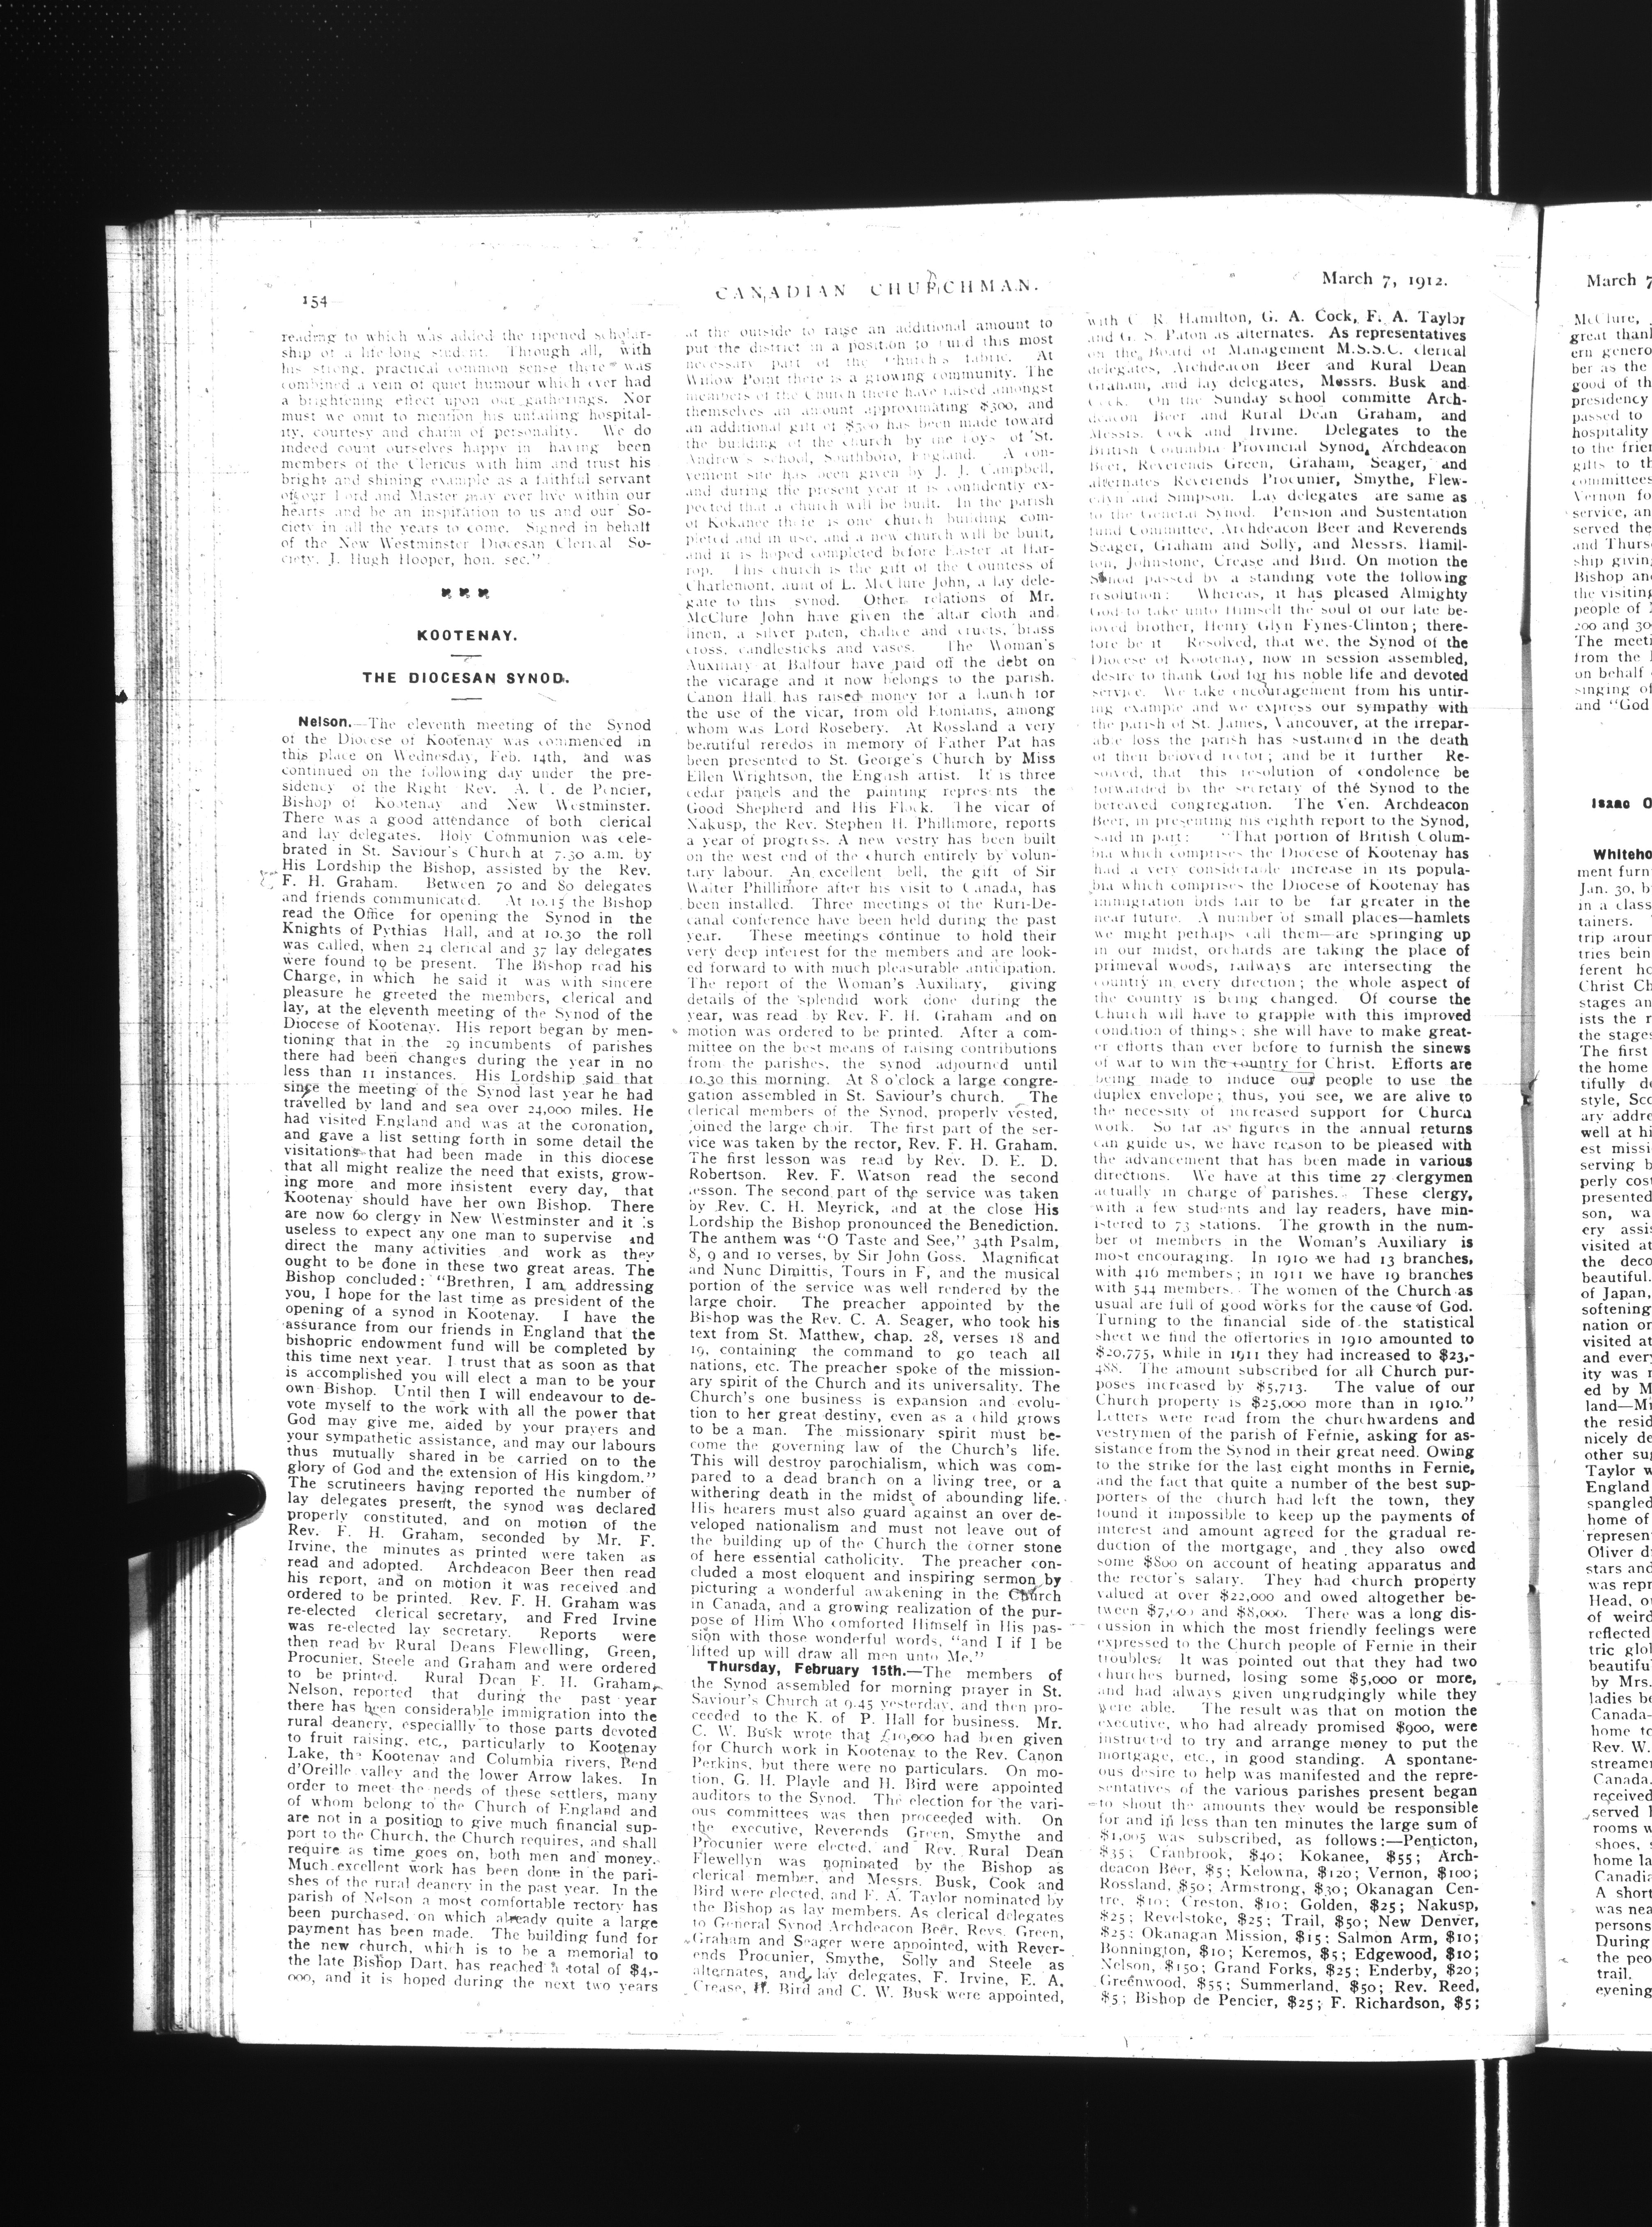 154
CANADIAN CHURCHMAN.
March 7, 1912.
reading to which was added the ripened scholar-
ship of a life-long student. Through all, with
his strong, practical common sense there was
combined a vein of quiet humour which ever had
a brightening effect upon our gatherings. Nor
must we omit to mention his unfailing hospital-
ity, courtesy and charm of personality. We do
indeed count ourselves happy in having been
members of the Clericus with him and trust his
bright and shining example as a faithful servant
of our Lord and Master may ever live within our
hearts and be an inspiration to us and our So-
ciety in all the years to come. Signed in behalf
of the New Westminster Diocesan Clerical So-
ciety, J. Hugh Hooper, hon. sec."
KOOTENAY.
THE DIOCESAN SYNOD.
Nelson.—The eleventh meeting of the Synod
of the Diocese of Kootenay was commenced in
this place on Wednesday, Feb. 14th, and was
continued on the following day under the pre-
sidency of the Right Rev. A. U. de Pencier,
Bishop of Kootenay and New Westminster.
There was a good attendance of both clerical
and lay delegates. Holy Communion was cele-
brated in St. Saviour's Church at 7.30 a.m. by
His Lordship the Bishop, assisted by the Rev.
F. H. Graham. Between 70 and 80 delegates
and friends communicated. At 10.15 the Bishop
read the Office for opening the Synod in the
Knights of Pythias Hall, and at 10.30 the roll
was called, when 24 clerical and 37 lay delegates
were found to be present. The Bishop read his
Charge, in which he said it was with sincere
pleasure he greeted the members, clerical and
lay, at the eleventh meeting of the Synod of the
Diocese of Kootenay. His report began by men-
tioning that in the 29 incumbents of parishes
there had been changes during the year in no
less than 11 instances. His Lordship said that
since the meeting of the Synod last year he had
travelled by land and sea over 24,000 miles. He
had visited England and was at the coronation,
and gave a list setting forth in some detail the
visitations that had been made in this diocese
that all might realize the need that exists, grow-
ing more and more insistent every day, that
Kootenay should have her own Bishop. There
are now 60 clergy in New Westminster and it is
useless to expect any one man to supervise and
direct the many activities and work as they
ought to be done in these two great areas. The
Bishop concluded: "Brethren, I am addressing
you, I hope for the last time as president of the
opening of a synod in Kootenay. I have the
assurance from our friends in England that the
bishopric endowment fund will be completed by
this time next year. I trust that as soon as that
is accomplished you will elect a man to be your
own Bishop. Until then I will endeavour to de-
vote myself to the work with all the power that
God may give me, aided by your prayers and
your sympathetic assistance, and may our labours
thus mutually shared in be carried on to the
glory of God and the extension of His kingdom."
The scrutineers having reported the number of
lay delegates present, the synod was declared
properly constituted, and on motion of the
Rev. F. H. Graham, seconded by Mr. F.
Irvine, the minutes as printed were taken as
read and adopted. Archdeacon Beer then read
his report, and on motion it was received and
ordered to be printed. Rev. F. H. Graham was
re-elected clerical secretary, and Fred Irvine
was re-elected lay secretary. Reports were
then read by Rural Deans Flewelling, Green,
Procunier, Steele and Graham and were ordered
to be printed. Rural Dean F. H. Graham,
Nelson, reported that during the past year
there has been considerable immigration into the
rural deanery, especiallly to those parts devoted
to fruit raising, etc., particularly to Kootenay
Lake, the Kootenay and Columbia rivers, Pend
d'Oreille valley and the lower Arrow lakes. In
order to meet the needs of these settlers, many
of whom belong to the Church of England and
are not in a position to give much financial sup-
port to the Church, the Church requires, and shall
require as time goes on, both men and money.
Much excellent work has been done in the pari-
shes of the rural deanery in the past year. In the
parish of Nelson a most comfortable rectory has
been purchased, on which already quite a large
payment has been made. The building fund for
the new church, which is to be a memorial to
the late Bishop Dart, has reached a total of $4,-
000, and it is hoped during the next two years
at the outside to raise an additional amount to
put the district in a position to build this most
necessary part of the Church's fabric. At
Willow Point there is a growing community. The
members of the Church there have raised amongst
themselves an amount approximating $300, and
an additional gift of $300 has been made toward
the building of the church by the boys of St.
Andrew's school, Southboro, England. A con-
venient site has been given by J. J. Campbell,
and during the present year it is confidently ex-
pected that a church will be built. In the parish
of Kokanee there is one church building com-
pleted and in use, and a new church will be built,
and it is hoped completed before Easter at Har-
rop. This church is the gift of the Countess of
Charlemont, aunt of L. McClure John, a lay dele-
gate to this synod. Other relations of Mr.
McClure John have given the altar cloth and
linen, a silver paten, chalice and cruets, brass
cross, candlesticks and vases. The Woman's
Auxiliary at Balfour have paid off the debt on
the vicarage and it now belongs to the parish.
Canon Hall has raised money for a launch for
the use of the vicar, from old Etonians, among
whom was Lord Rosebery. At Rossland a very
beautiful reredos in memory of Father Pat has
been presented to St. George's Church by Miss
Ellen Wrightson, the English artist. It is three
cedar panels and the painting represents the
Good Shepherd and His Flock. The vicar of
Nakusp, the Rev. Stephen H. Phillimore, reports
a year of progress. A new vestry has been built
on the west end of the church entirely by volun-
tary labour. An excellent bell, the gift of Sir
Walter Phillimore after his visit to Canada, has
been installed. Three meetings of the Ruri-De-
canal conference have been held during the past
year. These meetings continue to hold their
very deep interest for the members and are look-
ed forward to with much pleasurable anticipation.
The report of the Woman's Auxiliary, giving
details of the splendid work done during the
year, was read by Rev. F. H. Graham and on
motion was ordered to be printed. After a com-
mittee on the best means of raising contributions
from the parishes, the synod adjourned until
10.30 this morning. At 8 o'clock a large congre-
gation assembled in St. Saviour's church. The
clerical members of the Synod, properly vested,
joined the large choir. The first part of the ser-
vice was taken by the rector, Rev. F. H. Graham.
The first lesson was read by Rev. D. E. D.
Robertson. Rev. F. Watson read the second
lesson. The second part of the service was taken
by Rev. C. H. Meyrick, and at the close His
Lordship the Bishop pronounced the Benediction.
The anthem was "O Taste and See," 34th Psalm,
8, 9 and 10 verses, by Sir John Goss. Magnificat
and Nunc Dimittis, Tours in F, and the musical
portion of the service was well rendered by the
large choir. The preacher appointed by the
Bishop was the Rev. C. A. Seager, who took his
text from St. Matthew, chap. 28, verses 18 and
19, containing the command to go teach all
nations, etc. The preacher spoke of the mission-
ary spirit of the Church and its universality. The
Church's one business is expansion and evolu-
tion to her great destiny, even as a child grows
to be a man. The missionary spirit must be-
come the governing law of the Church's life.
This will destroy parochialism, which was com-
pared to a dead branch on a living tree, or a
withering death in the midst of abounding life.
His hearers must also guard against an over de-
veloped nationalism and must not leave out of
the building up of the Church the corner stone
of here essential catholicity. The preacher con-
cluded a most eloquent and inspiring sermon by
picturing a wonderful awakening in the Church
in Canada, and a growing realization of the pur-
pose of Him Who comforted Himself in His pas-
sion with those wonderful words, "and I if I be
lifted up will draw all men unto Me."
Thursday, February 15th.—The members of
the Synod assembled for morning prayer in St.
Saviour's Church at 9.45 yesterday, and then pro-
ceeded to the K. of P. Hall for business. Mr.
C. W. Busk wrote that £10,000 had been given
for Church work in Kootenay to the Rev. Canon
Perkins, but there were no particulars. On mo-
tion, G. H. Playle and H. Bird were appointed
auditors to the Synod. The election for the vari-
ous committees was then proceeded with. On
the executive, Reverends Green, Smythe and
Procunier were elected, and Rev. Rural Dean
Flewellyn was nominated by the Bishop as
clerical member, and Messrs. Busk, Cook and
Bird were elected, and F. A. Taylor nominated by
the Bishop as lay members. As clerical delegates
to General Synod Archdeacon Beer, Revs. Green,
Graham and Seager were appointed, with Rever-
ends Procunier, Smythe, Solly and Steele as
alternates, and lay delegates, F. Irvine, E. A.
Crease, H. Bird and C. W. Busk were appointed,
with C. R. Hamilton, G. A. Cock, F. A. Taylor
and G. S. Paton as alternates. As representatives
on the Board of Management M.S.S.C. clerical
delegates, Archdeacon Beer and Rural Dean
Graham, and lay delegates, Messrs. Busk and
Cock. On the Sunday school committe Arch-
deacon Beer and Rural Dean Graham, and
Messrs. Cock and Irvine. Delegates to the
British Columbia Provincial Synod, Archdeacon
Beer, Reverends Green, Graham, Seager, and
alternates Reverends Procunier, Smythe, Flew-
ellyn and Simpson. Lay delegates are same as
to the General Synod. Pension and Sustentation
fund Committee, Archdeacon Beer and Reverends
Seager, Graham and Solly, and Messrs. Hamil-
ton, Johnstone, Crease and Bird. On motion the
Synod passed by a standing vote the following
resolution: Whereas, it has pleased Almighty
God to take unto Himself the soul of our late be-
loved brother, Henry Glyn Fynes-Clinton; there-
fore be it Resolved, that we, the Synod of the
Diocese of Kootenay, now in session assembled,
desire to thank God for his noble life and devoted
service. We take encouragement from his untir-
ing example and we express our sympathy with
the parish of St. James, Vancouver, at the irrepar-
able loss the parish has sustained in the death
of their beloved rector; and be it further Re-
solved, that this resolution of condolence be
forwarded by the secretary of the Synod to the
bereaved congregation. The Ven. Archdeacon
Beer, in presenting his eighth report to the Synod,
said in part: "That portion of British Colum-
bia which comprises the Diocese of Kootenay has
had a very considerable increase in its popula-
bia which comprises the Diocese of Kootenay has
immigration bids fair to be far greater in the
near future. A number of small places—hamlets
we might perhaps call them—are springing up
in our midst, orchards are taking the place of
primeval woods, railways are intersecting the
country in every direction; the whole aspect of
the country is being changed. Of course the
Church will have to grapple with this improved
condition of things; she will have to make great-
er efforts than ever before to furnish the sinews
of war to win the country for Christ. Efforts are
being made to induce our people to use the
duplex envelope; thus, you see, we are alive to
the necessity of increased support for Church
work. So far as figures in the annual returns
can guide us, we have reason to be pleased with
the advancement that has been made in various
directions. We have at this time 27 clergymen
actually in charge of parishes. These clergy,
with a few students and lay readers, have min-
istered to 73 stations. The growth in the num-
ber of members in the Woman's Auxiliary is
most encouraging. In 1910 we had 13 branches,
with 416 members; in 1911 we have 19 branches
with 544 members. The women of the Church as
usual are full of good works for the cause of God.
Turning to the financial side of the statistical
sheet we find the offertories in 1910 amounted to
$20,775, while in 1911 they had increased to $23,-
488. The amount subscribed for all Church pur-
poses increased by $5,713. The value of our
Church property is $25,000 more than in 1910."
Letters were read from the churchwardens and
vestrymen of the parish of Fernie, asking for as-
sistance from the Synod in their great need. Owing
to the strike for the last eight months in Fernie,
and the fact that quite a number of the best sup-
porters of the church had left the town, they
found it impossible to keep up the payments of
interest and amount agreed for the gradual re-
duction of the mortgage, and they also owed
some $800 on account of heating apparatus and
the rector's salary. They had church property
valued at over $22,000 and owed altogether be-
tween $7,000 and $8,000. There was a long dis-
cussion in which the most friendly feelings were
expressed to the Church people of Fernie in their
troubles. It was pointed out that they had two
churches burned, losing some $5,000 or more,
and had always given ungrudgingly while they
were able. The result was that on motion the
executive, who had already promised $900, were
instructed to try and arrange money to put the
mortgage, etc., in good standing. A spontane-
ous desire to help was manifested and the repre-
sentatives of the various parishes present began
to shout the amounts they would be responsible
for and in less than ten minutes the large sum of
$1,005 was subscribed, as follows:—Penticton,
$35; Cranbrook, $40; Kokanee, $55; Arch-
deacon Beer, $5; Kelowna, $120; Vernon, $100;
Rossland, $50; Armstrong, $30; Okanagan Cen-
tre, $10; Creston, $10; Golden, $25; Nakusp,
$25; Revelstoke, $25; Trail, $50; New Denver,
$25; Okanagan Mission, $15; Salmon Arm, $10;
Bonnington, $10; Keremos, $5; Edgewood, $10;
Nelson, $150; Grand Forks, $25; Enderby, $20;
Greenwood, $55; Summerland, $50; Rev. Reed,
$5; Bishop de Pencier, $25; F. Richardson, $5;
March 7
McClure,
great thank
ern genero
ber as the
good of th
presidency
passed to
hospitality
to the frien
gifts to th
committees
Vernon fo
service, an
served the
and Thurs
ship giving
Bishop an
the visiting
people of
200 and 30
The meeti
from the
on behalf
singing of
and "God
Isaac O
Whiteho
ment furn
Jan. 30, b
in a class
tainers.
trip aroun
tries bein
ferent ho
Christ Ch
stages an
ists the r
the stages
The first
the home
tifully de
style, Sco
ary addre
well at hi
est missi
serving b
perly cost
presented
son, wa
ery assis
visited at
the deco
beautiful.
of Japan,
softening
nation or
visited at
and every
ity was r
ed by M
land—Mi
the resid
nicely de
other sup
Taylor w
England
spangled
home of
represen
Oliver d
stars and
was repr
Head, o
of weird
reflected
tric glob
beautifu
by Mrs.
ladies be
Canada-
home to
Rev. W.
streamer
Canada.
received
served l
rooms w
shoes, s
home la
Canadia
A short
was nea
persons
During
the peo
trail.
evening